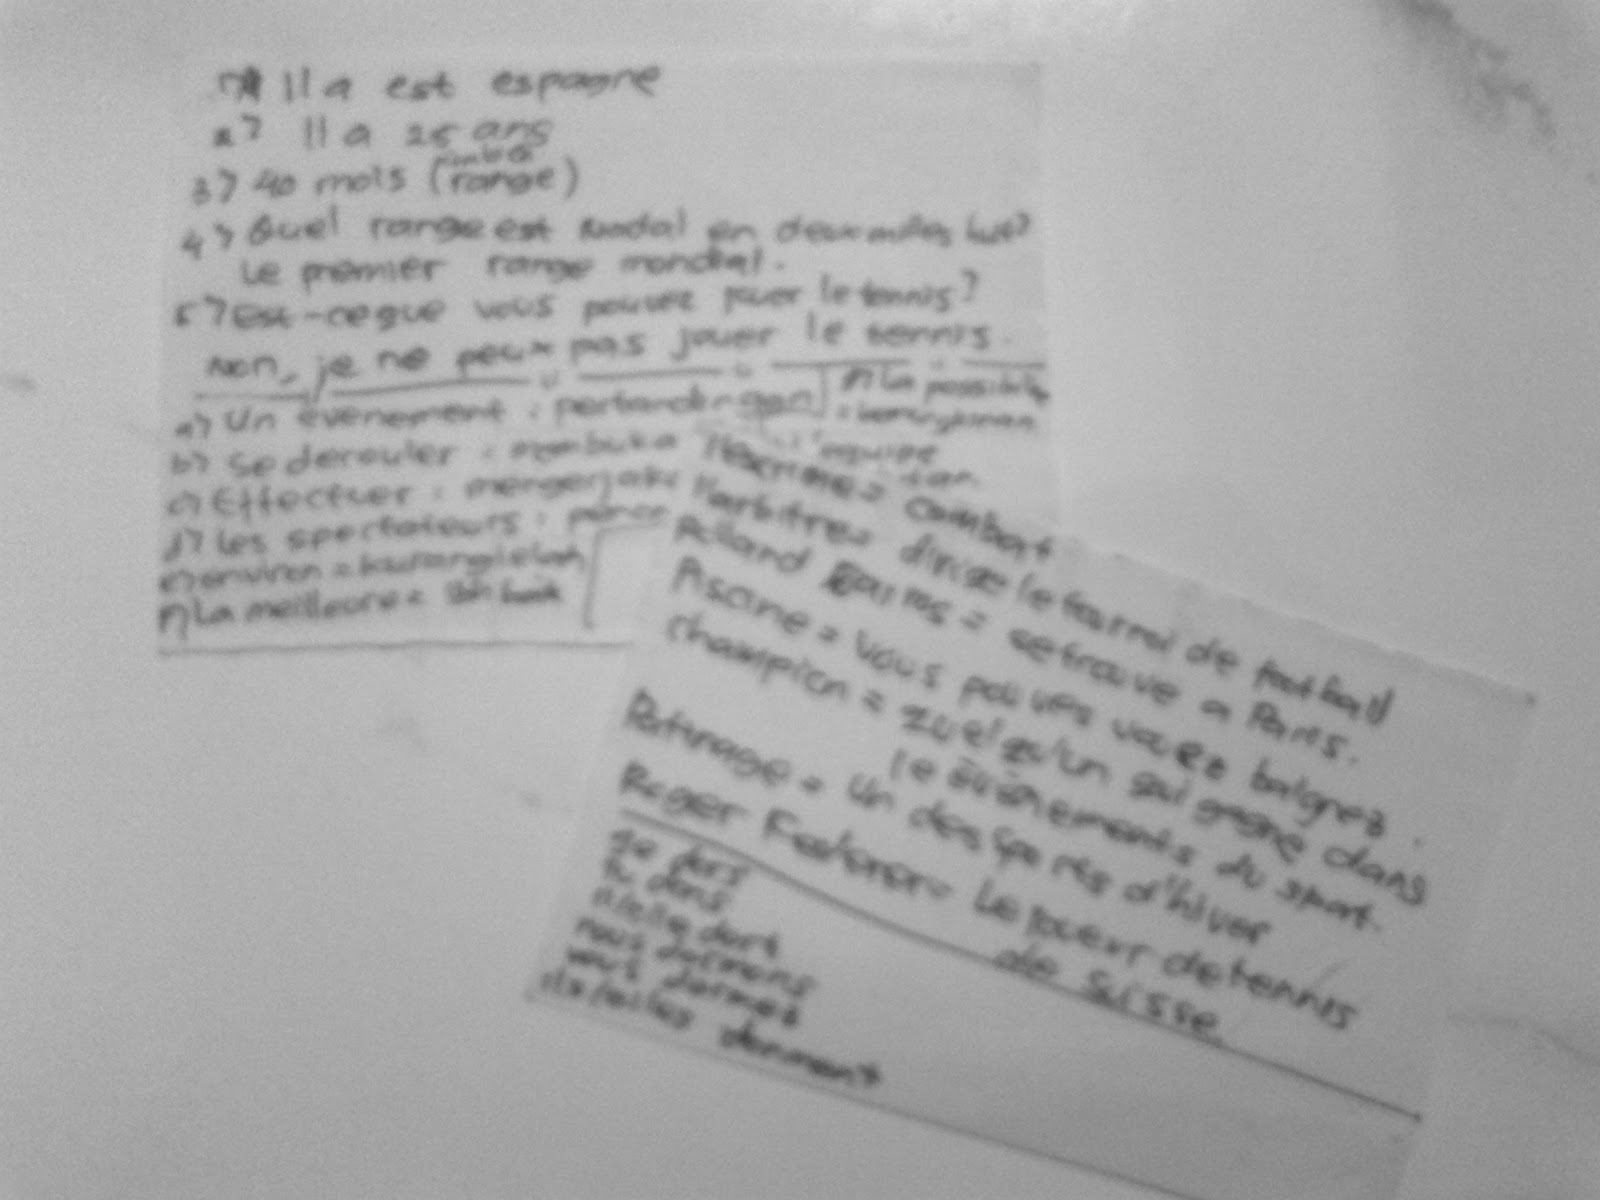 Il a est espagne
2) Il a 25 ans
3) 40 mois (range)
4) Quel range est Nadal en deux milles huit?
Le premier range mondial.
5) Est-ce que vous pouvez jouer le tennis?
Non, je ne peux pas jouer le tennis.
a) Un évenement : pertandingan
b) Se derouler = membuka
c) Effectuer : mengerjakan
d) Les spectateurs :
e) environ = kurang lebih
f) La meilleure =
n) La possibilité
équipe
L'escrime = combat
l'arbitre = dirige le tournoi de football
Rolland Garros = retrouve a Paris.
Piscine = Vous pouvez vous baignez.
champion = quelqu'un qui gagne dans
le évènements du sport.
Patinage = Un des sports d'hiver
Roger Federer = Le joueur de tennis
de Suisse
je dors
tu dors
il/elle dort
nous dormons
vous dormez
ils/elles dorment